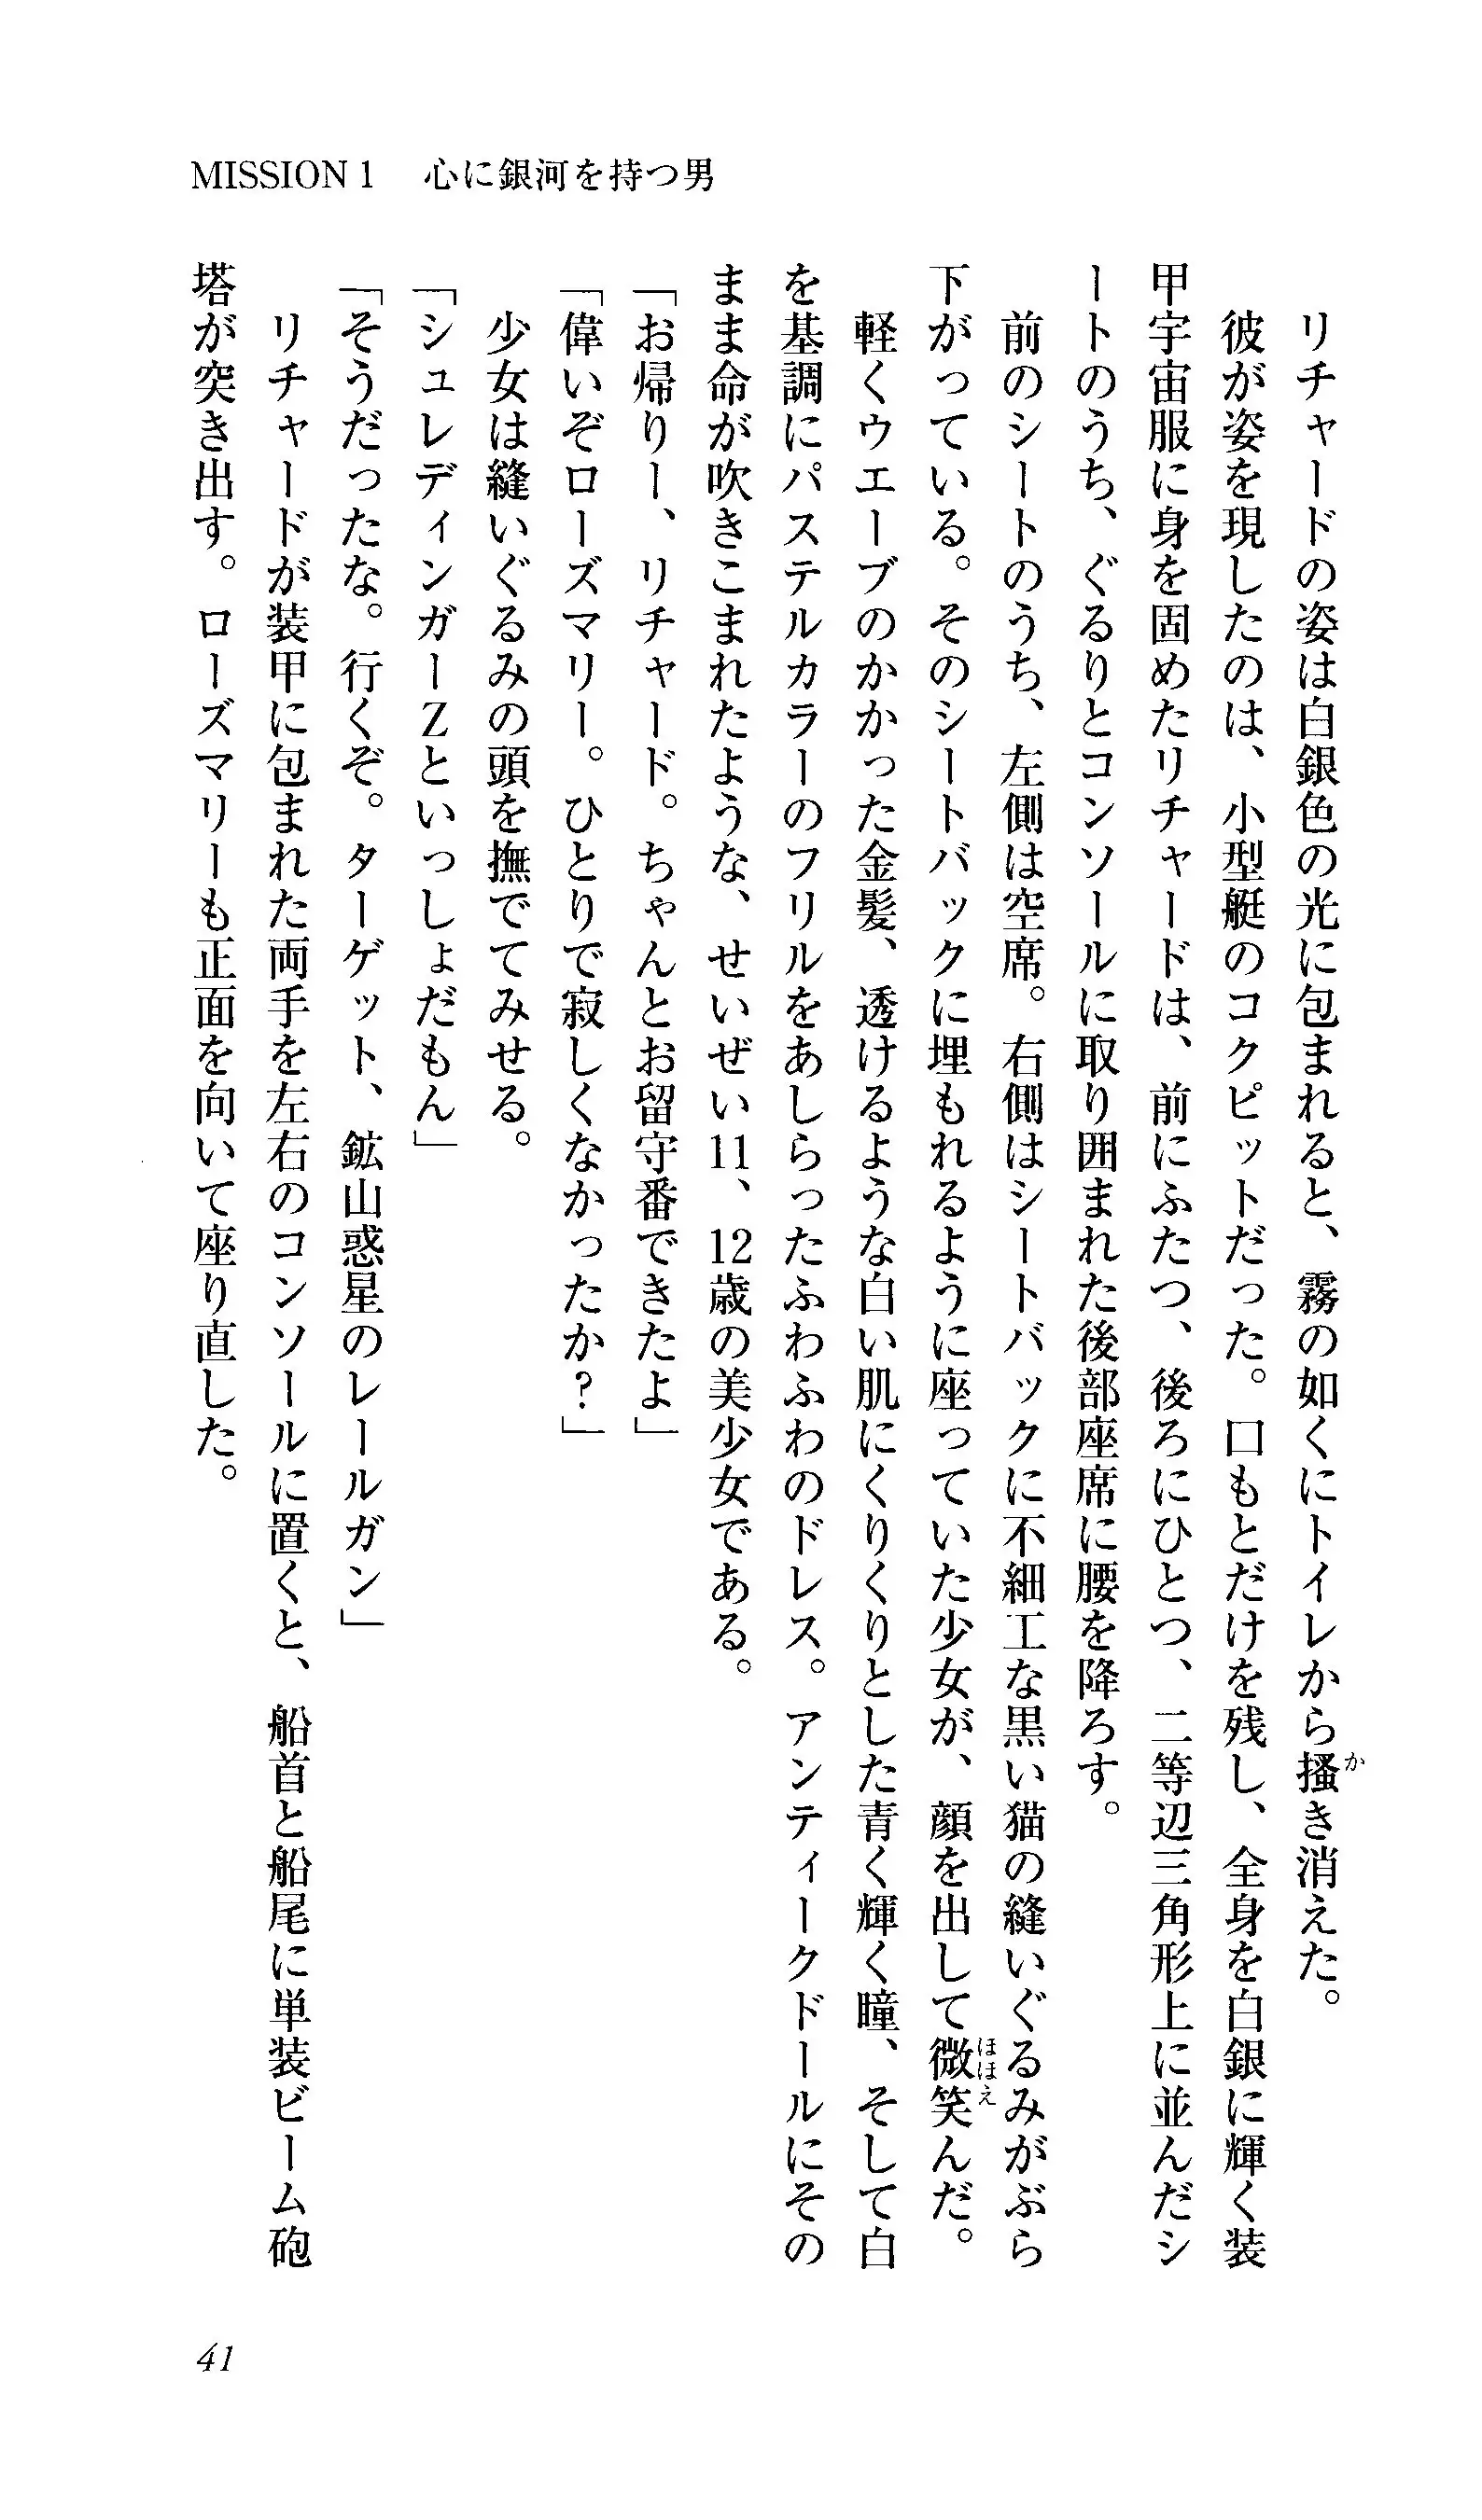 MISSION 1　心に銀河を持つ男
　リチャードの姿は白銀色の光に包まれると、霧の如くにトイレから搔き消えた。
　彼が姿を現したのは、小型艇のコクピットだった。口もとだけを残し、全身を白銀に輝く装
甲宇宙服に身を固めたリチャードは、前にふたつ、後ろにひとつ、二等辺三角形上に並んだシ
ートのうち、ぐるりとコンソールに取り囲まれた後部座席に腰を降ろす。
　前のシートのうち、左側は空席。右側はシートバックに不細工な黒い猫の縫いぐるみがぶら
下がっている。そのシートバックに埋もれるように座っていた少女が、顔を出して微笑んだ。
　軽くウエーブのかかった金髪、透けるような白い肌にくりくりとした青く輝く瞳、そして白
を基調にパステルカラーのフリルをあしらったふわふわのドレス。アンティークドールにその
まま命が吹きこまれたような、せいぜい11、12歳の美少女である。
「お帰りー、リチャード。ちゃんとお留守番できたよ」
「偉いぞローズマリー。ひとりで寂しくなかったか？」
　少女は縫いぐるみの頭を撫でてみせる。
「シュレディンガーZといっしょだもん」
「そうだったな。行くぞ。ターゲット、鉱山惑星のレールガン」
　リチャードが装甲に包まれた両手を左右のコンソールに置くと、船首と船尾に単装ビーム砲
塔が突き出す。ローズマリーも正面を向いて座り直した。
か
ほほえ
41